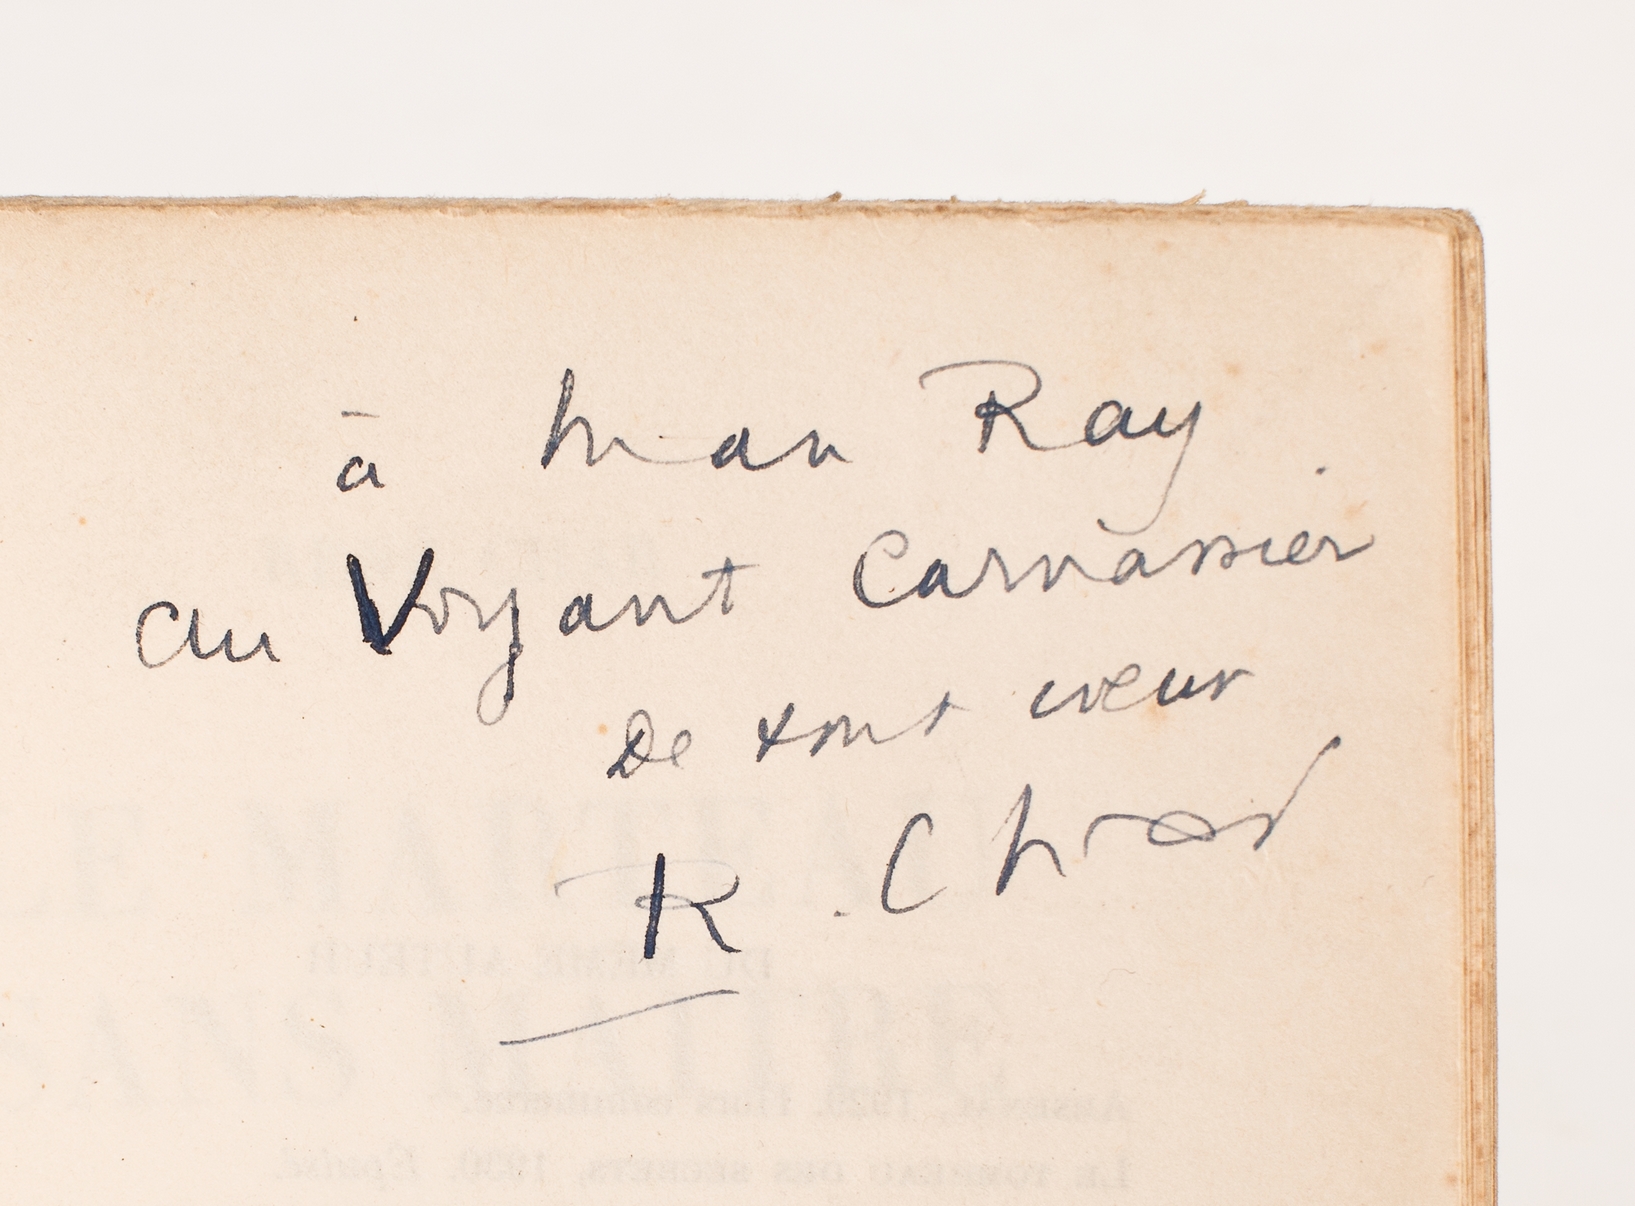 à Man Ray
au Voyant Carnassier
De tout cœur
R. Char
DU MÊME AUTEUR
ARSENAL, 1929. Hors commerce.
LE TOMBEAU DES SECRETS, 1930. Épuisé.